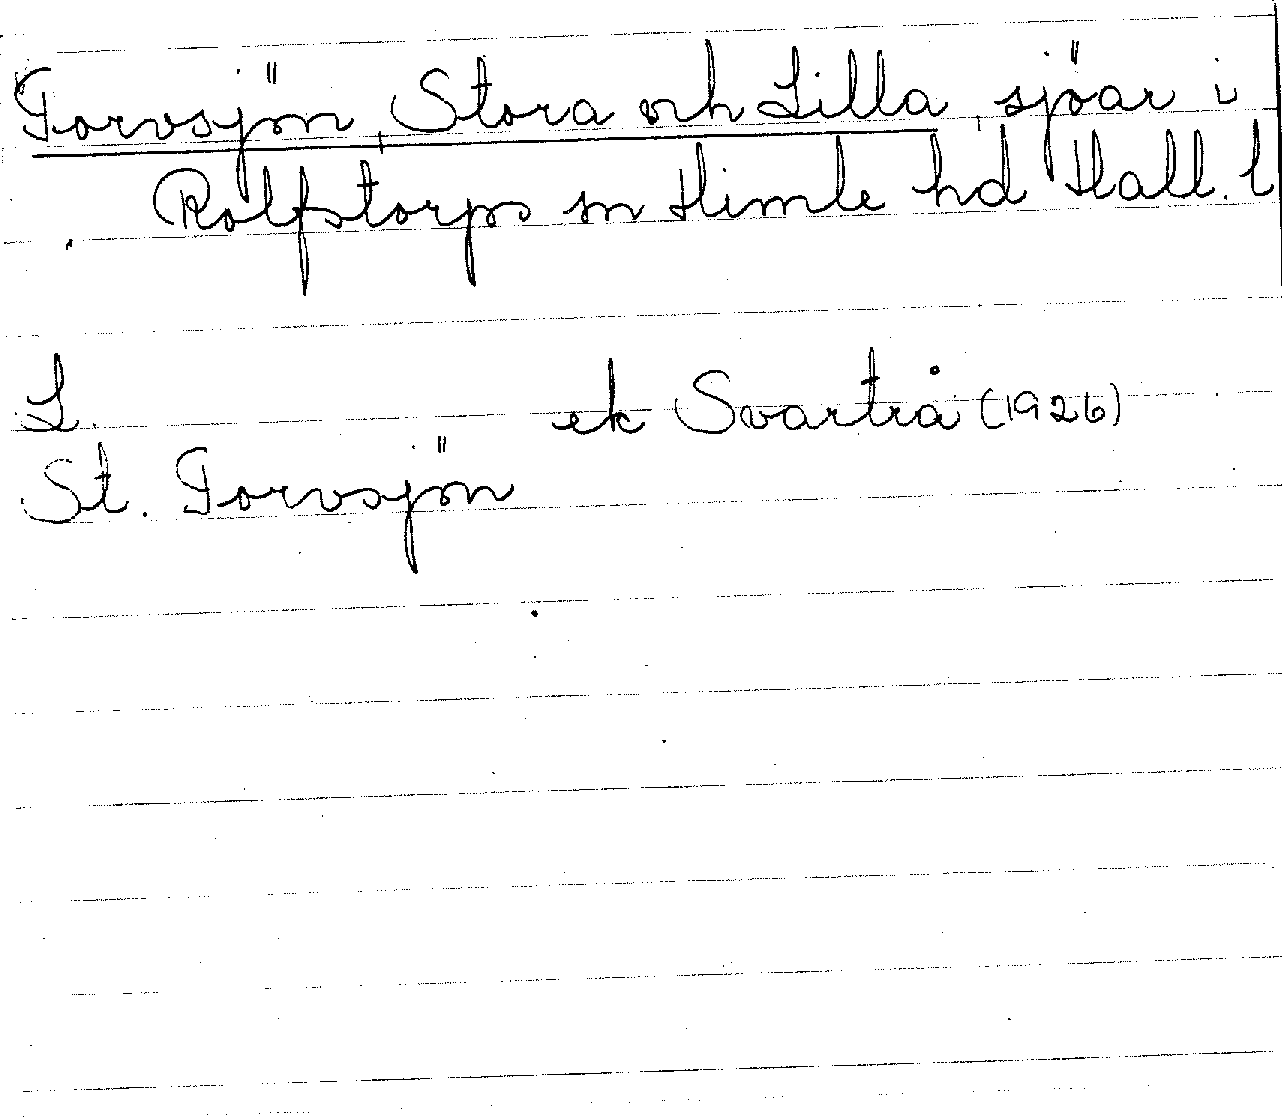 Torvsjön, Stora och Lilla, sjöar i
Rolfstorps sn Himle hd Hall. l
L. ek Svartrå (1926)
St. Torvsjön